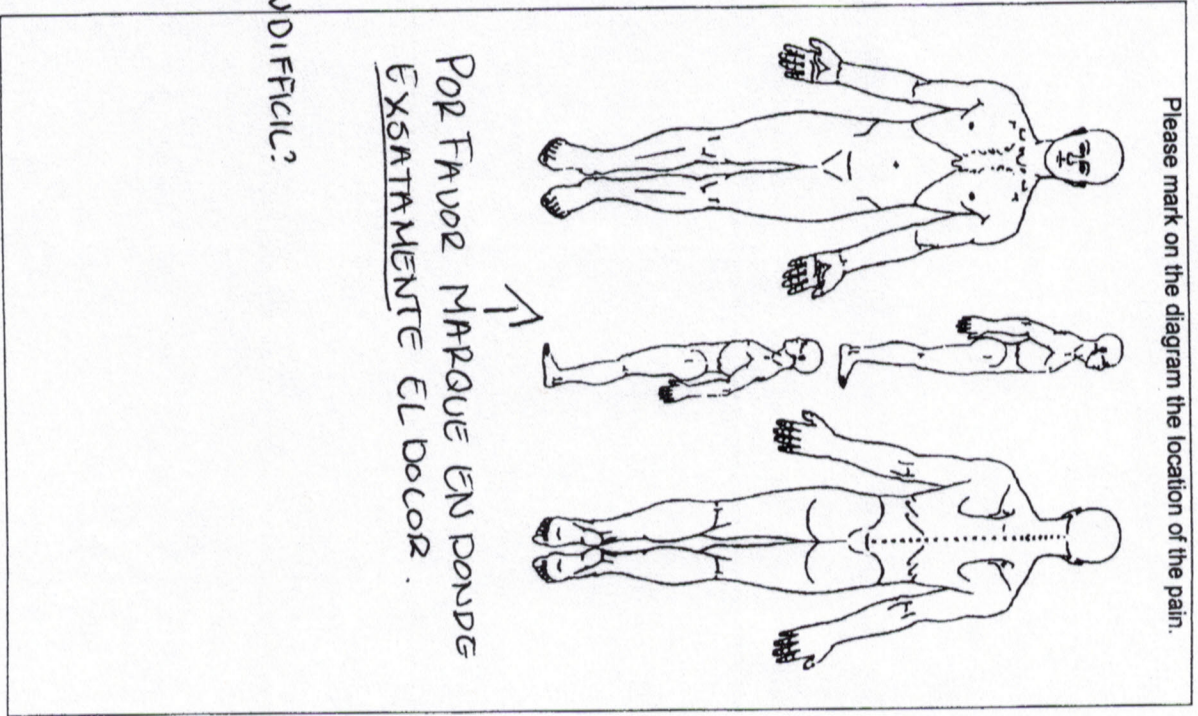 Please mark on the diagram the location of the pain.
POR FAVOR MARQUE EN DONDE
EXSATAMENTE EL DOLOR.
DIFFICIL?